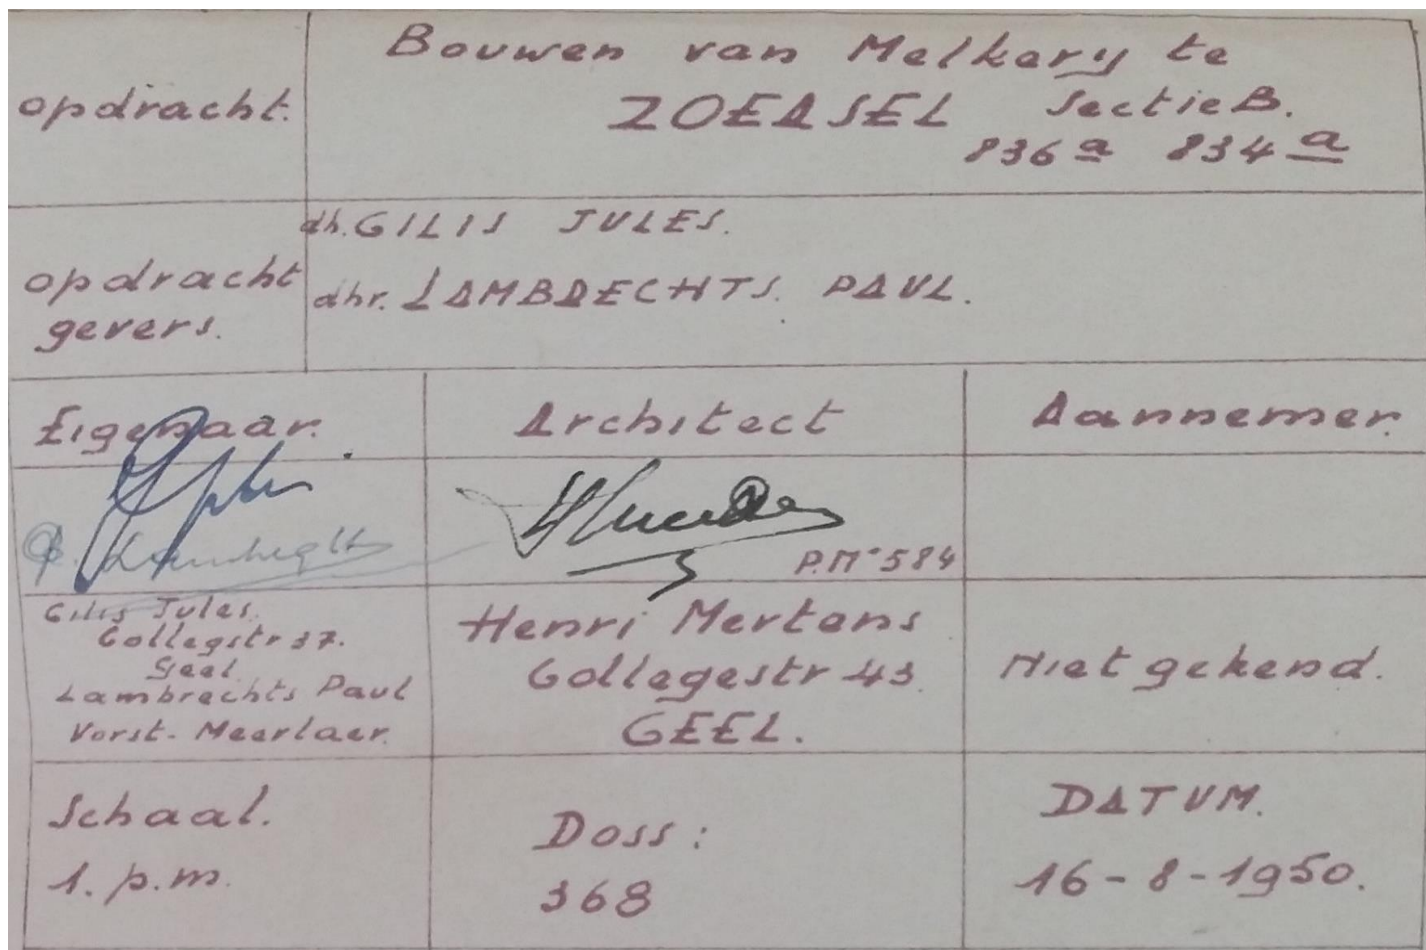 opdracht.
Bouwen van Melkery te
ZOERSEL Sectie B.
836 a 834 a
opdracht
gevers.
dh. GILIS JULES.
dhr. LAMBRECHTS. PAUL.
Eigenaar.
Architect
Aannemer.
P. Lambrechts
P.N° 584
Gilis Jules.
Collegstr 37.
Geel
Lambrechts Paul
Vorst-Meerlaer.
Henri Mertens
Collegestr 43.
GEEL.
Niet gekend.
Schaal.
1. p.m.
Doss:
368
DATUM.
16-8-1950.